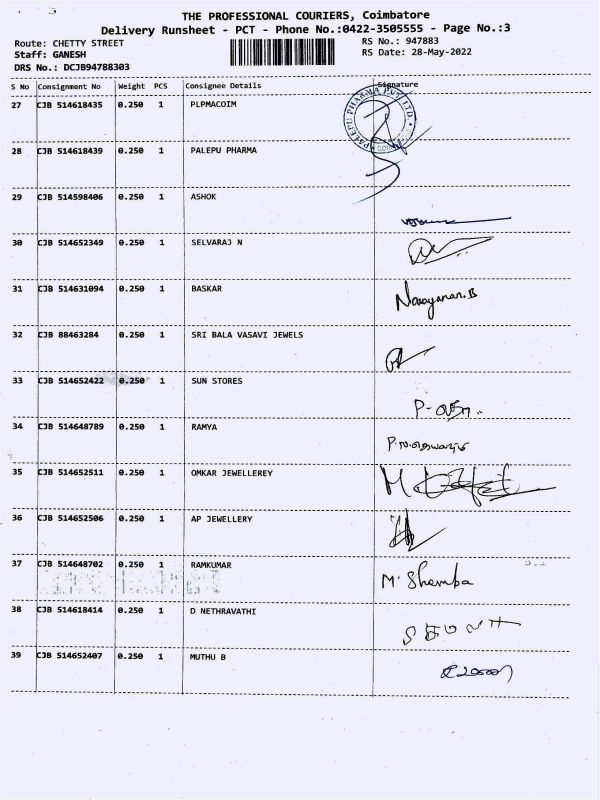 THE PROFESSIONAL COURIERS, Coimbatore
Delivery Runsheet - PCT - Phone No.:0422-3505555 - Page No.:3
Route: CHETTY STREET
RS No.: 947883
Staff: GANESH
RS Date: 28-May-2022
DRS No.: DCJB94788303
S No Consignment No Weight PCS Consignee Details Signature
27 CJB 514618435 0.250 1 PLPMACOIM
PALEPU PHARMA PVT LTD.
28 CJB 514618439 0.250 1 PALEPU PHARMA
29 CJB 514598406 0.250 1 ASHOK
30 CJB 514652349 0.250 1 SELVARAJ N
31 CJB 514631094 0.250 1 BASKAR
Narayanan.B
32 CJB 88463284 0.250 1 SRI BALA VASAVI JEWELS
33 CJB 514652422 0.250 1 SUN STORES
34 CJB 514648789 0.250 1 RAMYA
35 CJB 514652511 0.250 1 OMKAR JEWELLEREY
36 CJB 514652506 0.250 1 AP JEWELLERY
37 CJB 514648702 0.250 1 RAMKUMAR
M. Shemba
38 CJB 514618414 0.250 1 D NETHRAVATHI
39 CJB 514652407 0.250 1 MUTHU B